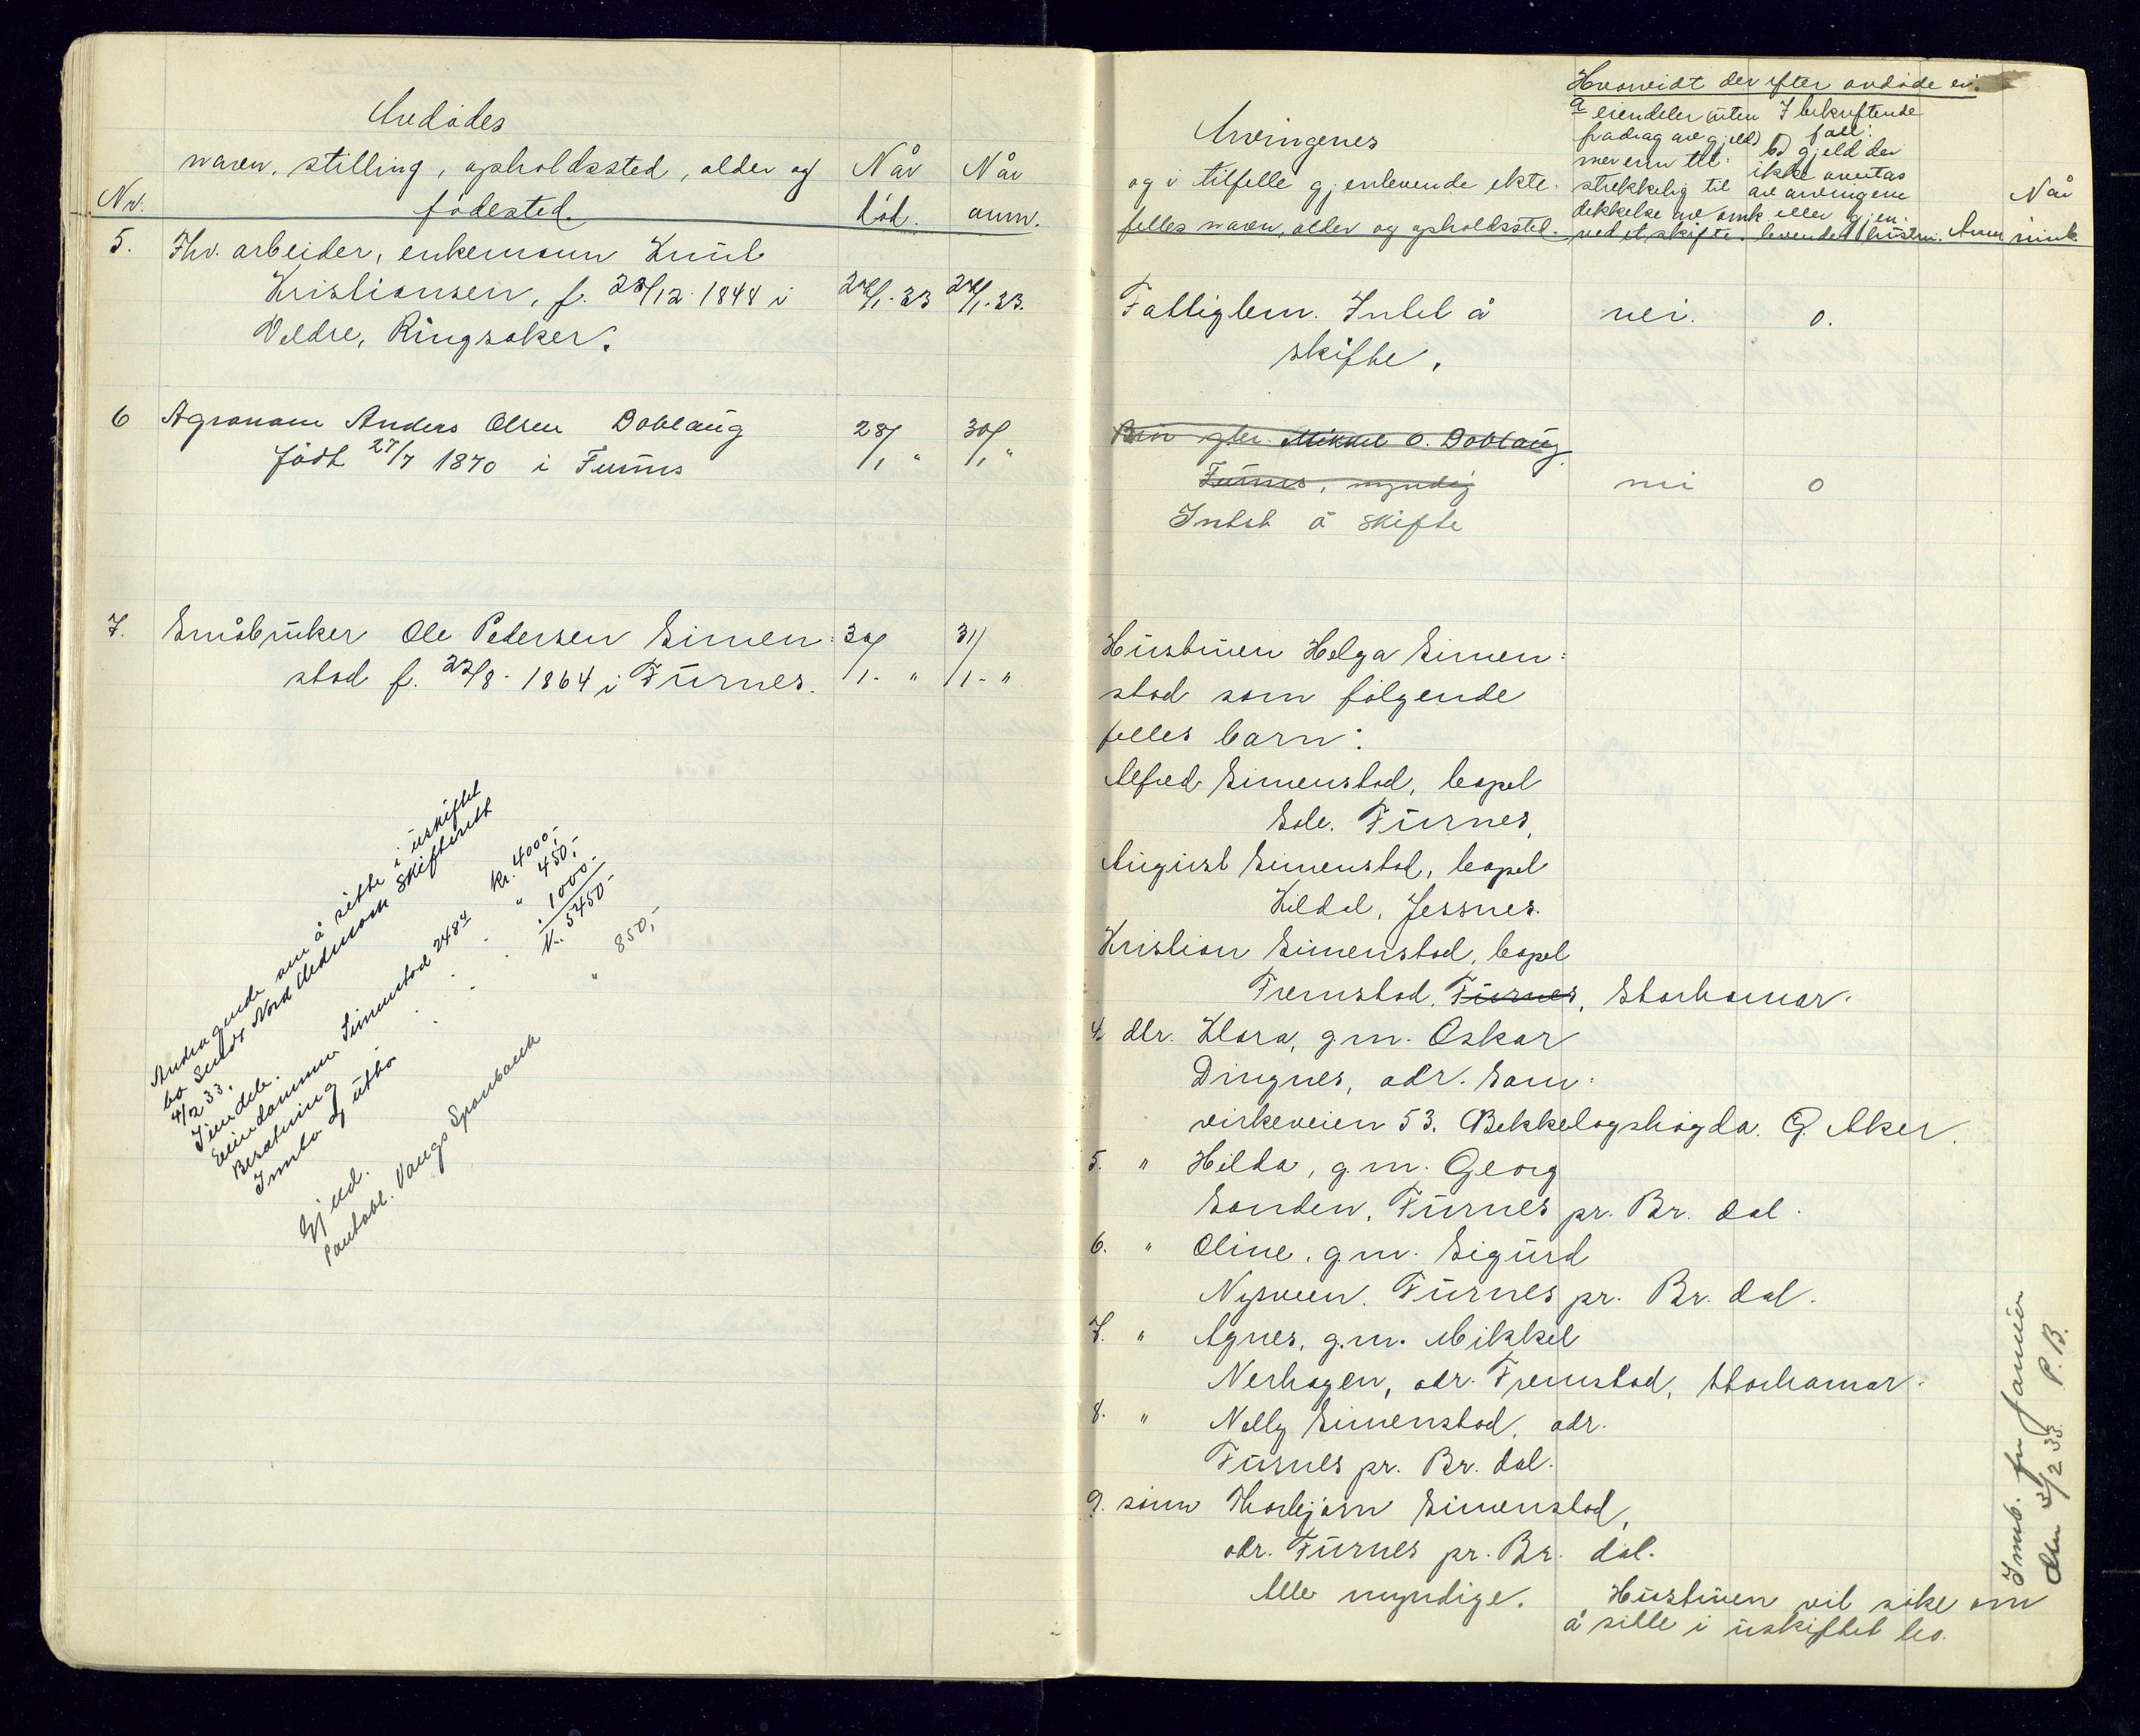 Avdødes
navn, stilling, opholdssted, alder og
fødested.
Nr.
Når
død.
Når
anm.
5. Fhv. arbeider, enkemann Knut
Kristiansen, f. 28/12 1848 i
Veldre, Ringsaker.
6 Agronom Anders Olsen Doblaug 28/1 " 30/1 "
født 27/7 1870 i Furnes
7. Småbruker Ole Pedersen Simen= 30/1 - " 31/1 - "
stad f. 22/8 - 1864 i Furnes.
Andragende om å sitte i uskiftet
bo sendt Nord Hedmark Skifterett
4/2 33.
Eiendele.
Eiendommen Simenstad 248 4 kr. 4000,-
Besetning " 450,-
Innbo og utbo " 1000 -
Kr. 5450 -
Gjeld.
Pantobl. Vangs Sparebank " 850,-
Arvingenes
og i tilfelle gjenlevende ekte=
felles navn, alder og opholdssted.
Hvorvidt der efter avdøde er:
a eiendeler (uten
fradrag av gjeld)
mer enn til=
strekkelig til
dekkelse av omk.
ved et skifte.
I bekreftende
fall:
b) gjeld der
ikke overtas
av arvingene
eller gjen=
levende hustru.
Anm
Når
innb.
Fattiglem. Intet å nei. 0.
skifte.
Bror gbr. Mikkel O. Doblaug
Furnes, myndig nei 0
Intet å skifte
Hustruen Helga Simen=
stad som følgende
felles barn:
Alfred Simenstad, kapel
Sole. Furnes,
August Simenstad, kapel
Kildal, Jessnes.
Kristian Simenstad, kapel
Fremstad, Furnes, Storhamar.
4. dtr. Klara, g.m. Oskar
Dingnes, adr. Sam=
virkeveien 53. Bekkelagshøgda. Ø. Aker.
5. " Hilda, g.m. Georg
Sanden, Furnes pr. Br. dal.
6. " Oline, g.m. Sigurd
Nysveen. Furnes pr. Br. dal.
7. " Agnes, g.m. Mikkel
Nerhagen, adr. Fremstad, Storhamar.
8. " Nelly Simenstad, adr.
Furnes pr. Br. dal.
9. sønn Thorbjørn Simenstad,
adr. Furnes pr. Br. dal.
Alle myndige. Hustruen vil søke om
å sitte i uskiftet bo.
Innb. for januar
den 3/2 33. P. B.